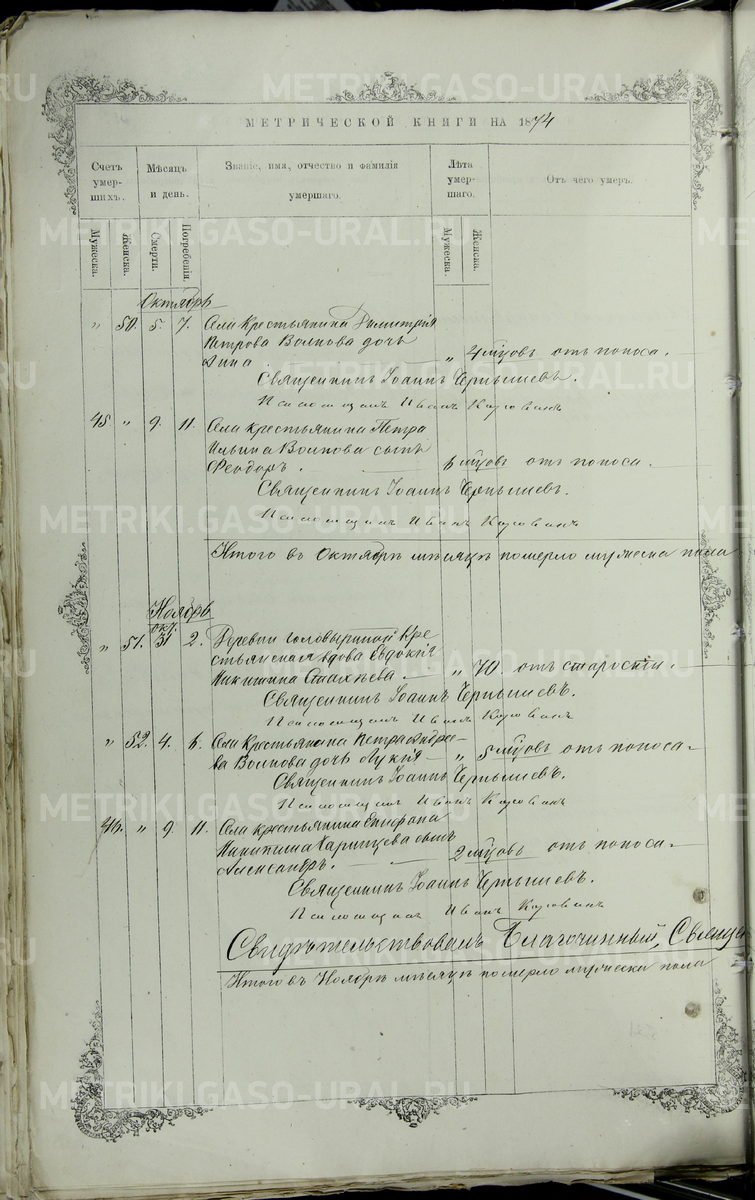 METRIKI.GASO-URAL.RU
МЕТРИЧЕСКОЙ КНИГИ НА 1874
Счетъ умер- шихъ. Мѣсяцъ и день. Званіе, имя, отчество и фамилія умершаго. Лѣта умер- шаго. Отъ чего умеръ.
Мужеска. Женска. Смерти. Погребенія. Мужеска. Женска.
Октябрь
" 50. 5. 7. Села Крестьянина Димитрія
Петрова Волкова дочь
Анна. " 4 мцовъ отъ поноса.
Священникъ Іоаннъ Чернышевъ.
Псаломщикъ Иванъ
45. " 9. 11. Села крестьянина Петра
Ильина Волкова сынъ
Феодоръ. 6 мцовъ отъ поноса.
Священникъ Іоаннъ Чернышевъ.
Псаломщикъ Иванъ
Итого въ Октябрѣ мѣсяцѣ померло мужеска пола
Ноябрь
окт.
" 51. 31 2. Деревни Головыриной Кре-
стьянская вдова Евдокія
Никитина " 70. отъ старости.
Священникъ Іоаннъ Чернышевъ.
Псаломщикъ Иванъ
" 52. 4. 6. Села Крестьянина Петра Андрее-
ва Волкова дочь Лукія " 5 мцовъ отъ поноса
Священникъ Іоаннъ Чернышевъ.
Псаломщикъ Иванъ
46. " 9. 11. Села крестьянина Епифана
Никитина сынъ
Александръ. 2 мцовъ отъ поноса
Священникъ Іоаннъ Чернышевъ.
Псаломщикъ Иванъ
Свидѣтельствовалъ Благочинный,
Итого въ Ноябрѣ мѣсяцѣ померло мужеска пола